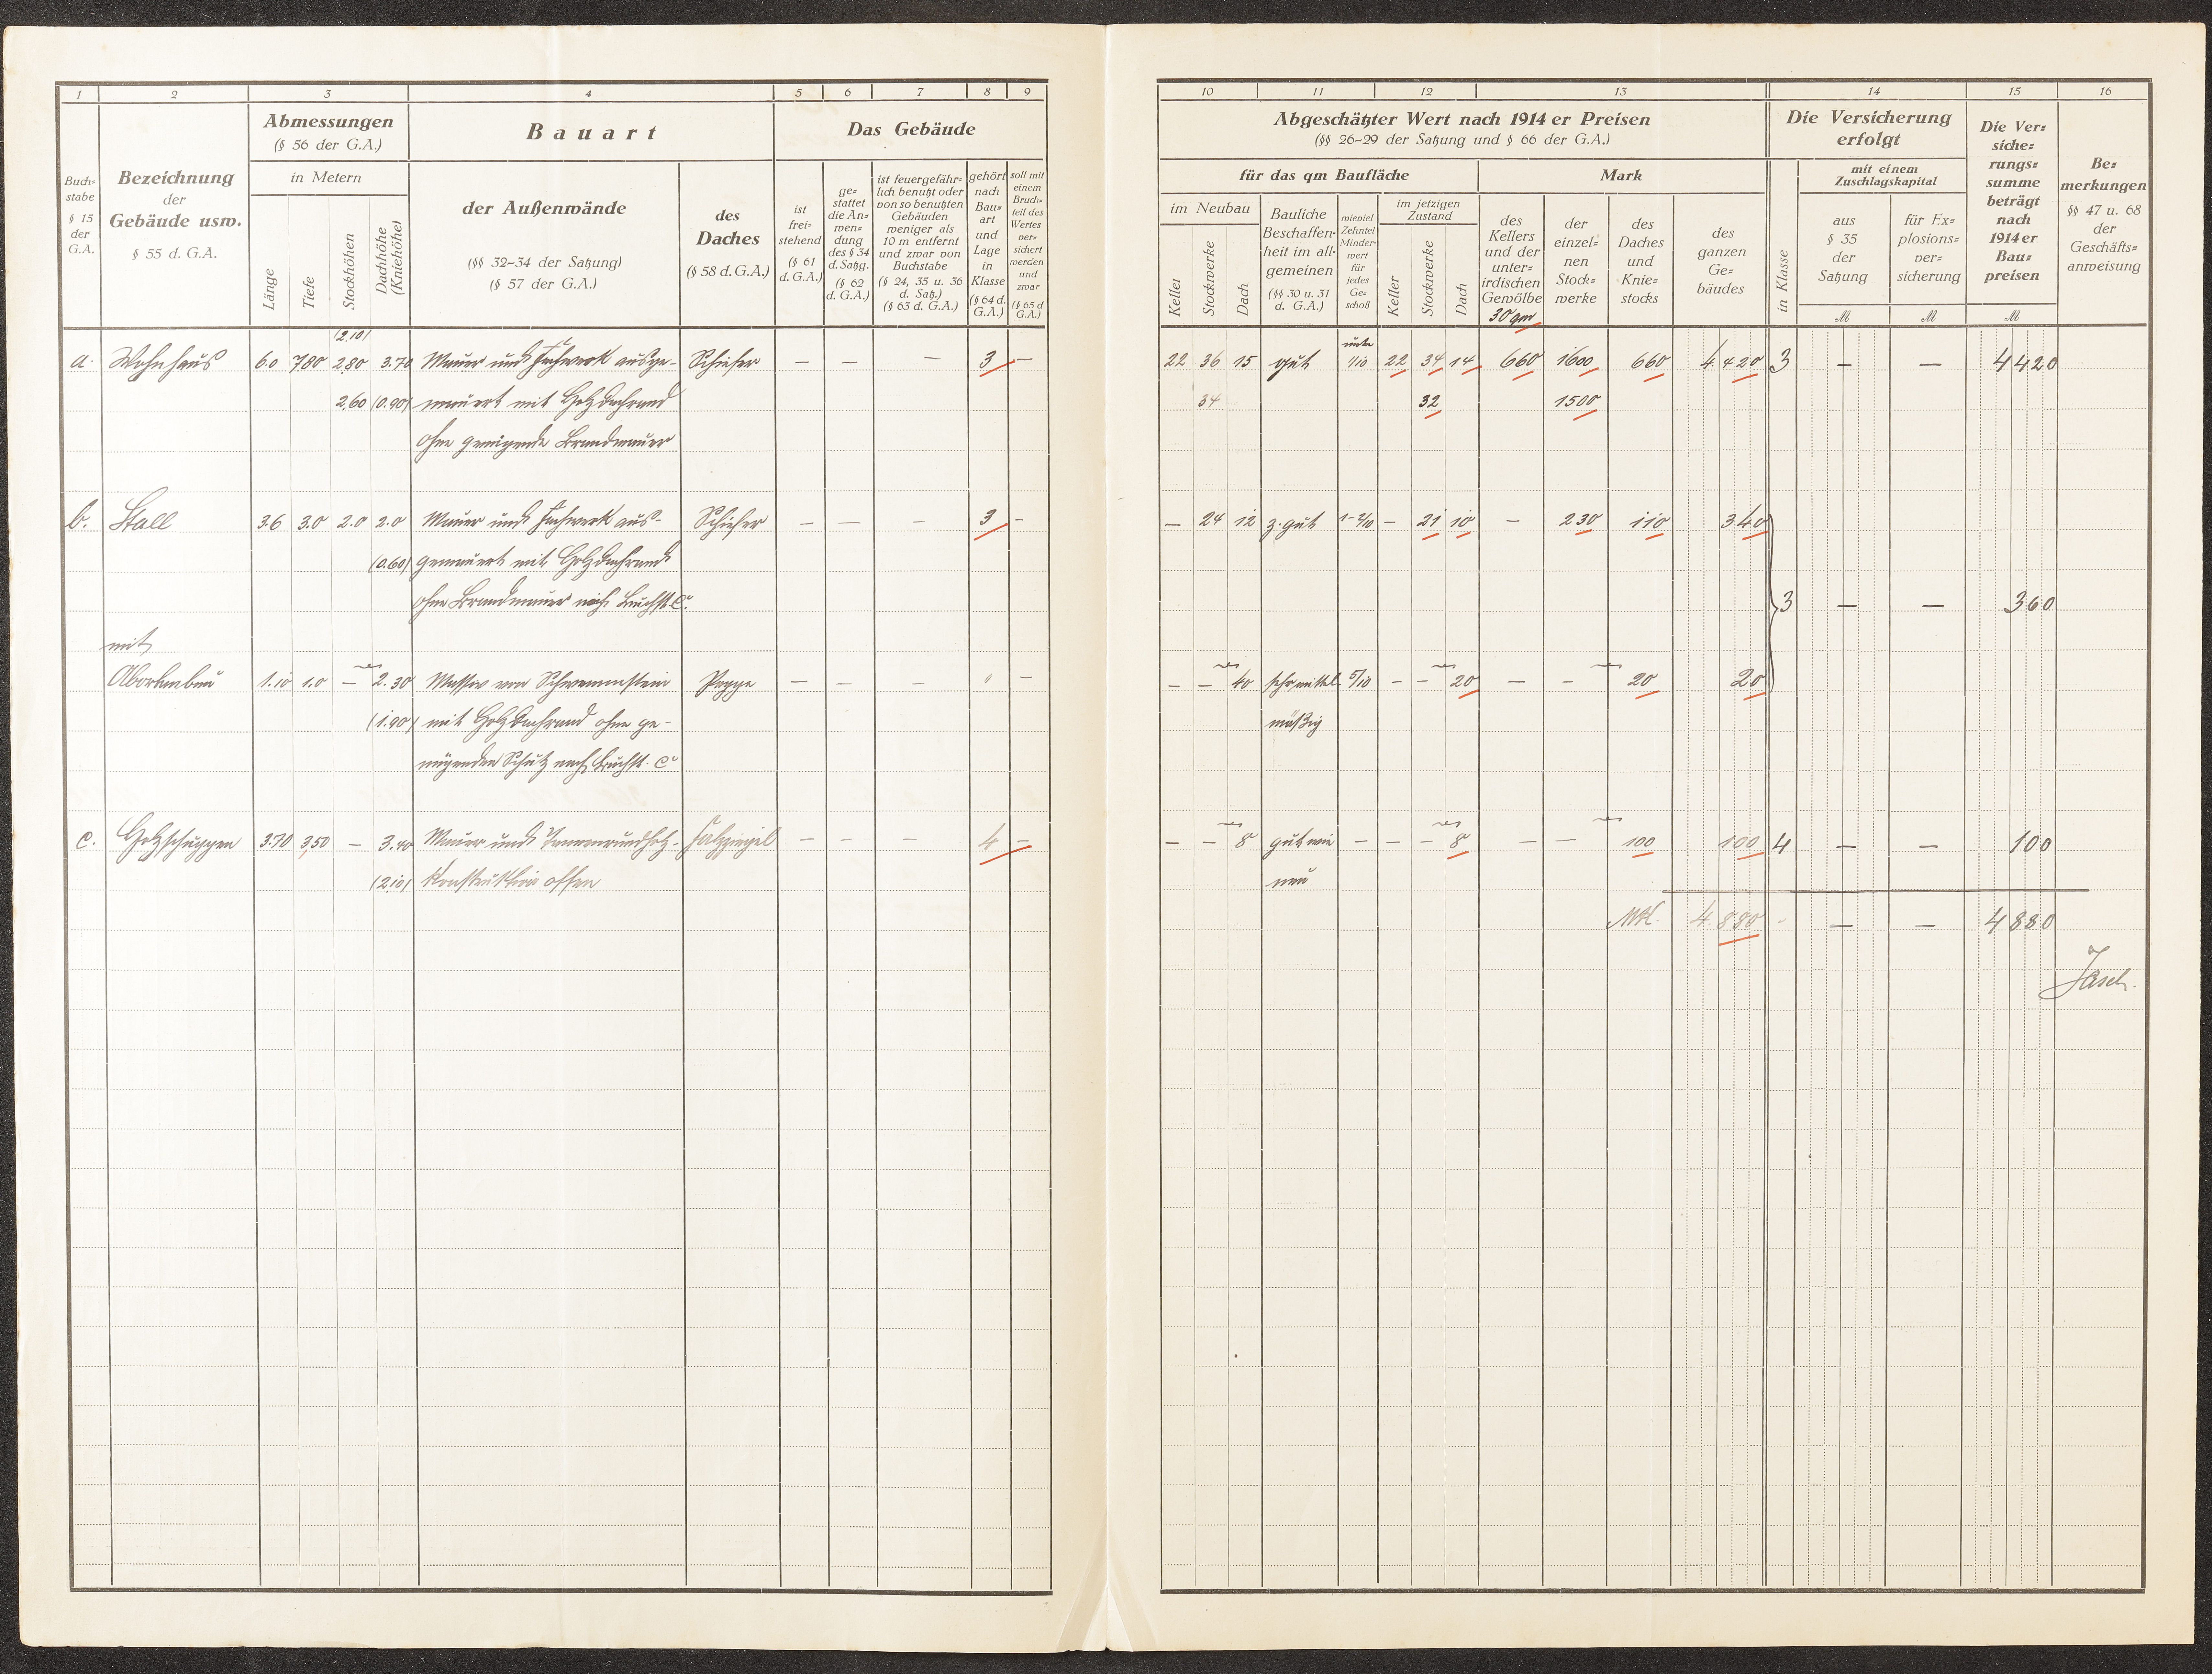 1 2 3 4 5 6 7 8 9
Buch=
stabe
§ 15
der
G.A.
Bezeichnung
der
Gebäude usw.
§ 55 d. G.A.
Abmessungen
(§ 56 der G.A.)
in Metern
Länge
Tiefe
Stockhöhen
Dachhöhe
(Kniehöhe)
Bauart
der Außenwände
(§§ 32–34 der Satzung)
(§ 57 der G.A.)
des
Daches
(§ 58 d. G.A.)
Das Gebäude
ist
frei=
stehend
(§ 61
d. G.A.)
ge=
stattet
die An=
wen=
dung
des § 34
d. Satzg.
(§ 62
d. G.A.)
ist feuergefähr=
lich benutzt oder
von so benutzten
Gebäuden
weniger als
10 m entfernt
und zwar von
Buchstabe
(§ 24, 35 u. 36
d. Satz.)
(§ 63 d. G.A.)
gehört
nach
Bau=
art
und
Lage
in
Klasse
(§ 64 d.
G.A.)
soll mit
einem
Bruch=
teil des
Wertes
ver=
sichert
werden
und
zwar
(§ 65 d.
G.A.)
(2.10)
a. Wohnhaus 6.0 7.80 2.80 3.70 Mauer und Fachwerk ausge- Schiefer — — — 3 —
2.60 (0.90) mauert mit Holzdachrand
ohne genügende Brandmauer
b. Stall 3.6 3.0 2.0 2.0 Mauer und Fachwerk aus- Schiefer — — — 3 —
(0.60) gemauert mit Holzdachrand
ohne Brandmauer nach Buchst. C.
mit
Abortanbau 1.10 1.0 — 2.30 Massiv von Schwemmstein Pappe — — — " —
(1.90) mit Holzdachrand ohne ge-
nügenden Schutz nach Buchst. C.
c. Holzschuppen 3.70 3.50 — 3.40 Mauer und Tannenrundholz- Falzziegel — — — 4 —
(2.10) Konstruktion offen
10 11 12 13 14 15 16
Abgeschätzter Wert nach 1914 er Preisen
(§§ 26–29 der Satzung und § 66 der G.A.)
für das qm Baufläche
im Neubau
Keller
Stockwerke
Dach
Bauliche
Beschaffen=
heit im all=
gemeinen
(§§ 30 u. 31
d. G.A.)
wieviel
Zehntel
Minder=
wert
für
jedes
Ge=
schoß
im jetzigen
Zustand
Keller
Stockwerke
Dach
Mark
des
Kellers
und der
unter=
irdischen
Gewölbe
30 qm
der
einzel=
nen
Stock=
werke
des
Daches
und
Knie=
stocks
des
ganzen
Ge=
bäudes
Die Versicherung
erfolgt
in Klasse
mit einem
Zuschlagskapital
aus
§ 35
der
Satzung
M
für Ex=
plosions=
ver=
sicherung
M
Die Ver=
siche=
rungs=
summe
beträgt
nach
1914 er
Bau=
preisen
M
Be=
merkungen
§§ 47 u. 68
der
Geschäfts=
anweisung
unter
22 36 15 gut 1/10 22 34 14 660 1600 660 4420 3 — — 4420
34 32 1500
— 24 12 z. gut 1-2/10 — 21 10 — 230 110 340
3 — — 360
— — 40 sehr mittel- 5/10 — — 20 — — 20 20
mäßig
— — 8 gut wie — — — 8 — — 100 100 4 — — 100
neu
Mk. 4880 — — 4880
Jasch.